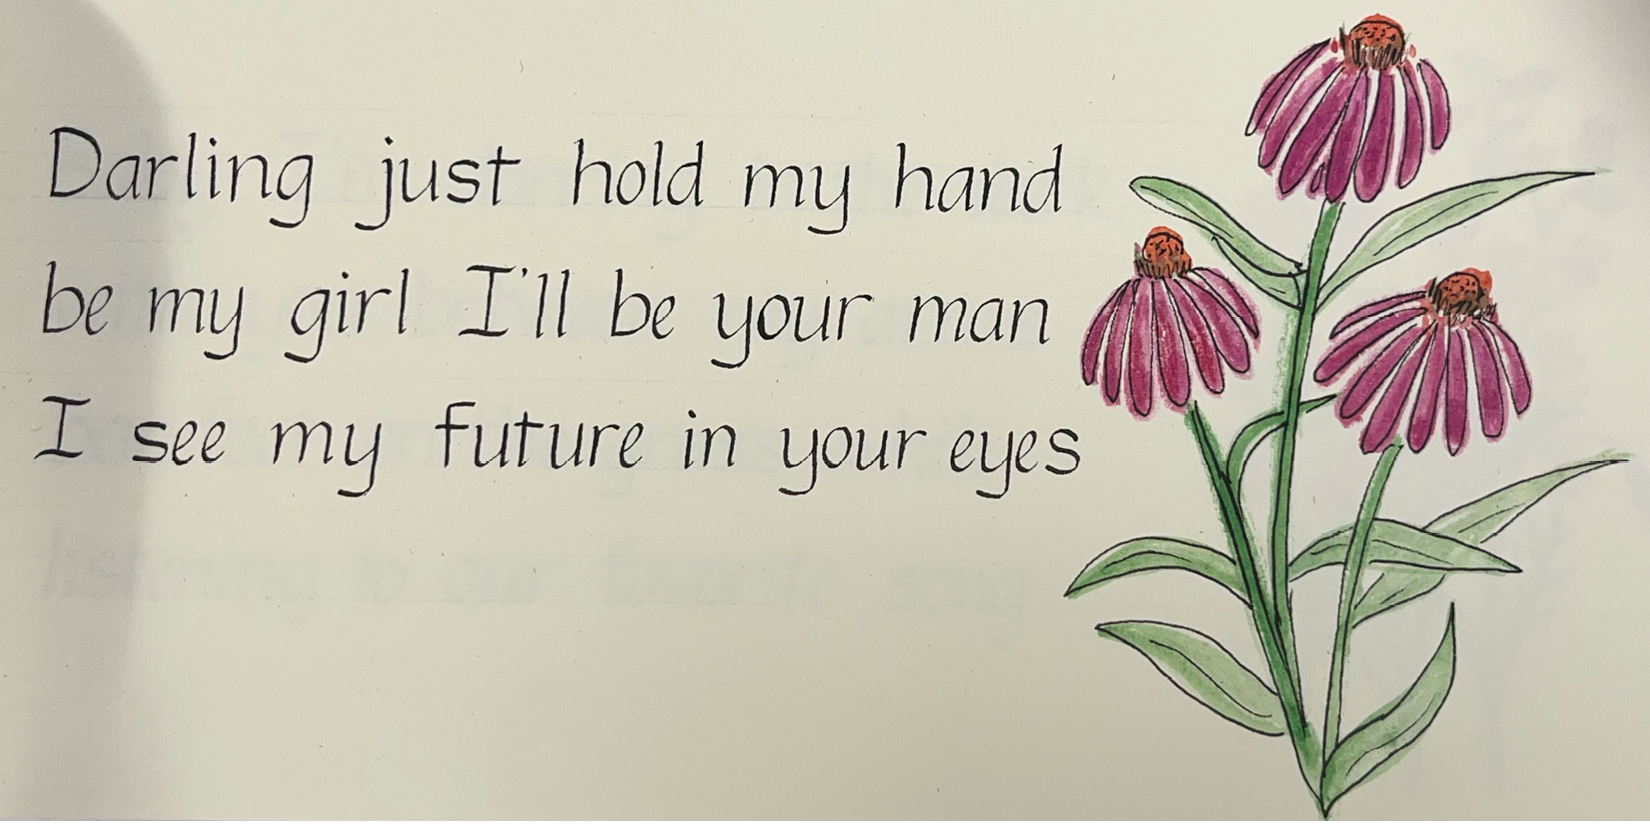 Darling just hold my hand
be my girl I'll be your man
I see my future in your eyes